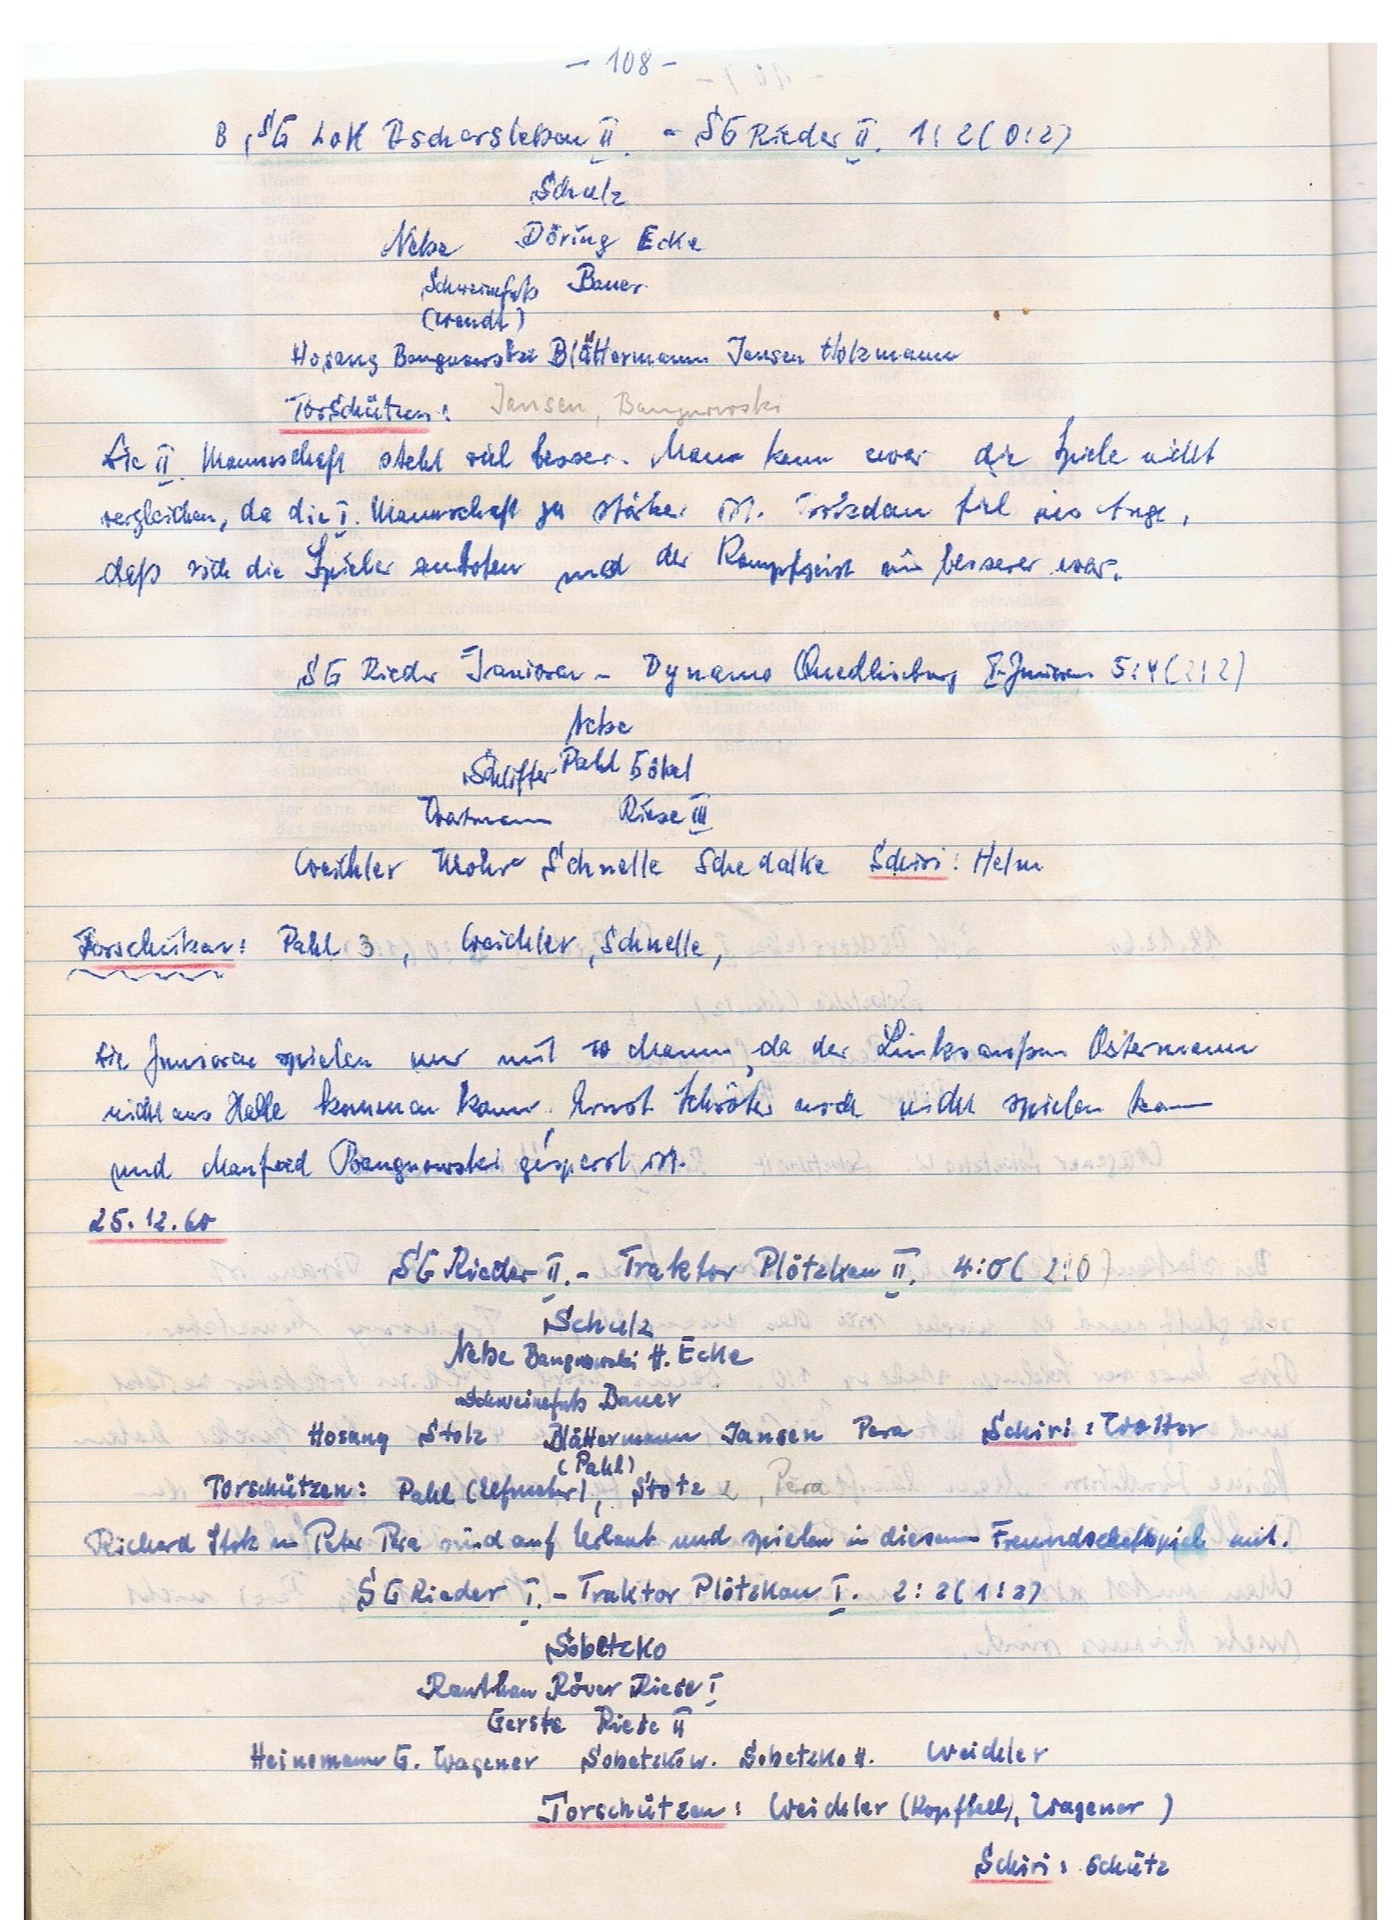 - 108 -
B, SG Lok Aschersleben II. - SG Rieder II. 1:2 (0:2)
Schulz
Nebe Döring Ecke
Schweinefuß Bauer
(Wendt)
Hosang Bangnowski Blättermann Jansen Holzmann
Torschützen: Jansen, Bangnowski
Die II. Mannschaft steht viel besser. Man kann zwar die Spiele nicht
vergleichen, da die I. Mannschaft ja stärker ist. Trotzdem fiel ins Auge,
daß sich die Spieler anboten und der Kampfgeist ein besserer war.
SG Rieder Junioren - Dynamo Quedlinburg I. Junioren 5:4 (2:2)
Nebe
Schlifter Pahl Gökel
Wortmann Riese III
Weichler Mohr Schnelle Schedalke Schiri: Helm
Torschützen: Pahl 3, Weichler, Schnelle,
Die Junioren spielen nur mit 10 Mann, da der Linksaußen Ostermann
nicht aus Halle kommen kann. Ernst Schröter noch nicht spielen kann
und Manfred Bangnowski gesperrt ist.
25.12.60
SG Rieder II. - Traktor Plötzkau II. 4:0 (2:0)
Schulz
Nebe Bangnowski H. Ecke
Schweinefuß Bauer
Hosang Stolz Blättermann Jansen Pera Schiri: Wolter
(Pahl)
Torschützen: Pahl (Elfmeter), Stolz 2, Pera
Richard Stolz u. Peter Pera sind auf Urlaub und spielen in diesem Freundschaftspiel mit.
SG Rieder I. - Traktor Plötzkau I. 2:2 (1:2)
Sobetzko
Rauthan Röver Riese I
Gerste Riese II
Heinemann G. Wagener Sobetzko W. Sobetzko H. Weichler
Torschützen: Weichler (Kopfball), Wagener)
Schiri: Schütz